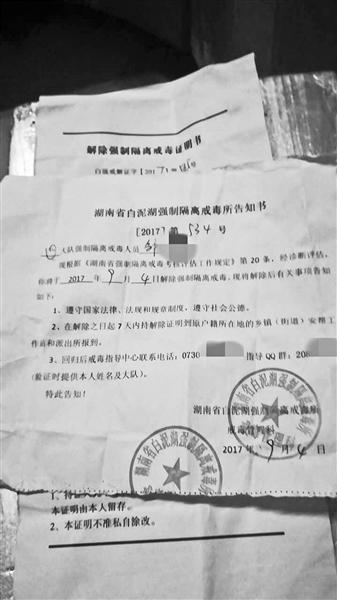 解除强制隔离戒毒证明书
白强戒解证字【2017】
号
湖南省白泥湖强制隔离戒毒所告知书
[2017]第534号
大队强制隔离戒毒人员
现根据《湖南省强制隔离戒毒考核评估工作规定》第20条，经诊断评估，
你将于2017年9月4日解除强制隔离戒毒。现将解除后有关事项告知
如下：
1、遵守国家法律、法规和规章制度，遵守社会公德。
2、在解除之日起7天内持解除证明到原户籍所在地的乡镇（街道）安帮工
作站和派出所报到。
3、回归后戒毒指导中心联系电话：0730 指导QQ群：208
(验证时提供本人姓名及大队)。
特此告知！
湖南省白泥湖强制隔离戒毒所
戒毒管理科
2017年9月4日
湖南省白泥湖强制隔离戒毒所
本证明由本人留存。
2、本证明不准私自涂改。